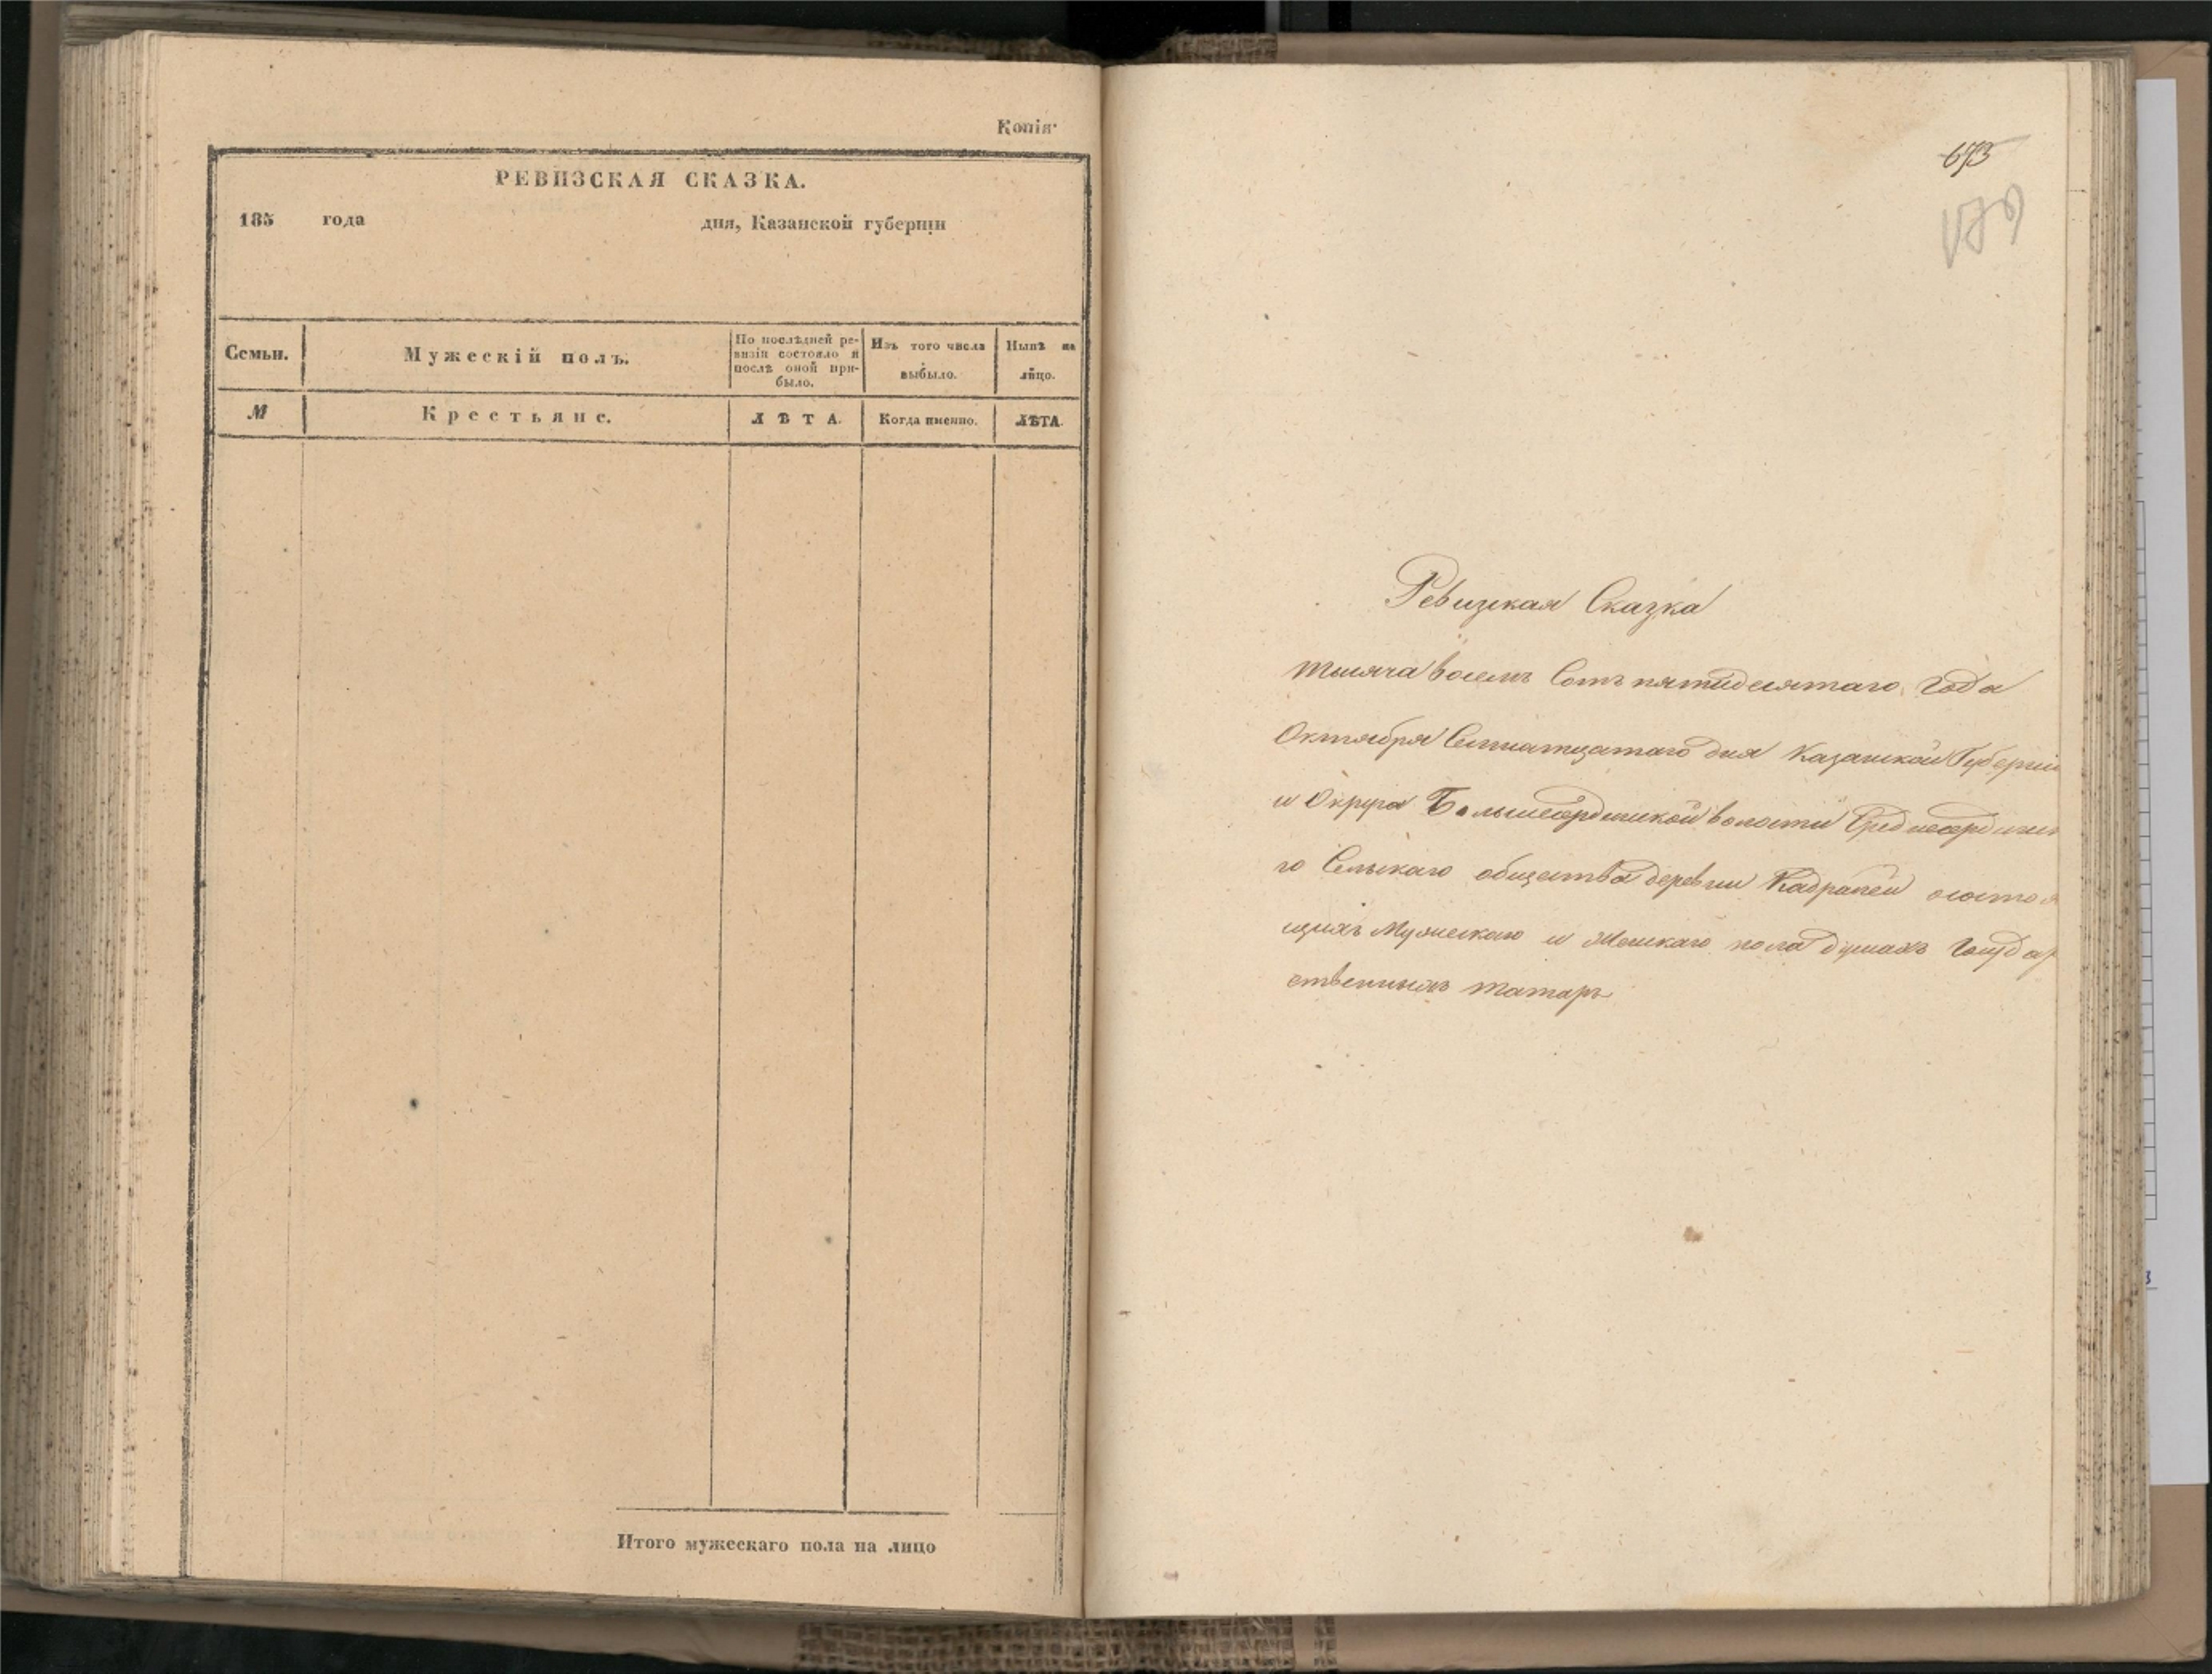 Копія
РЕВИЗСКАЯ СКАЗКА.
185 года дня, Казанской губерніи
Семьи. Мужескій полъ. По послѣдней ре-
визіи состояло и
послѣ оной при-
было. Изъ того числа
выбыло. Нынѣ на
лицо.
№ Крестьяне. ЛѢТА. Когда именно. ЛѢТА.
Итого мужескаго пола на лицо
673
179
Ревизкая Сказка
тысяча восемь Сотъ пятидесятаго года
Октября Семнатцатаго дня Казанской Губерніи
и Округа Большеатряской волости
го Сельскаго общества деревни Кадряпей состоя
щихъ Мужескаго и Женскаго пола душахъ Государ
ственныхъ татаръ